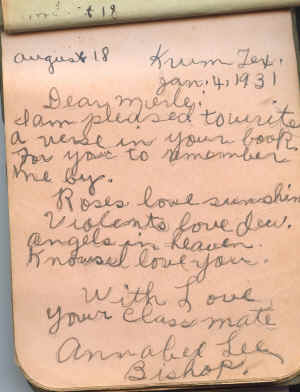 t 19
august 18
Krum Tex.
Jan. 4, 1931
Dear Merle:
I am pleased to write
a verse in your book
For you to remember
me by.
Roses love sunshin
Violents love dew.
angels in heaven.
Knows I love you.
With Love
your classmate
Annabel Lee
Bishop.